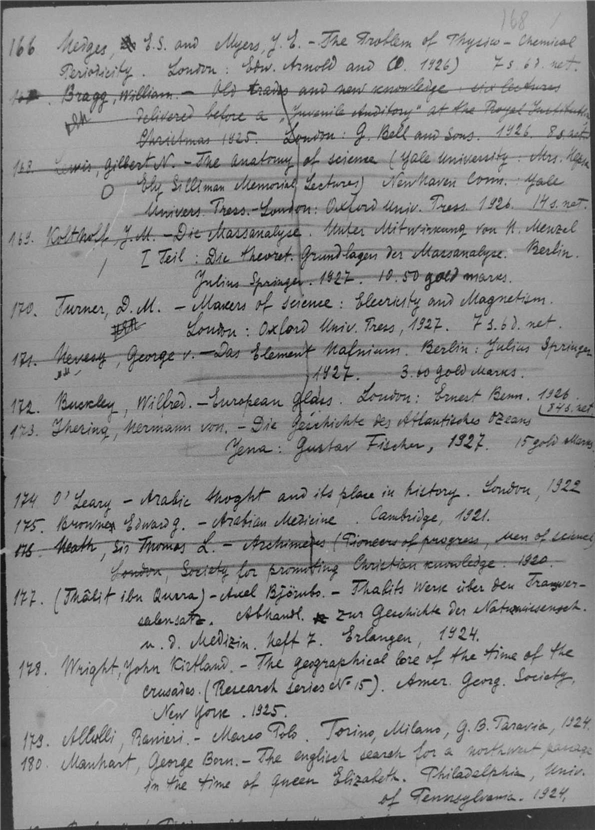 168
166 Hedges, E.S. and Myers, J. E. - The Problem of Physico - Chemical
Periodicity. London: Edw. Arnold and Co. 1926) 7 s. 6 d. net.
167. Bragg, William. - Old trades and new knowledge. six lectures
delivered before a "Juvenile Auditory" at the Royal Institution
Christmas 1925. London: G. Bell and Sons. 1926. 8 s. net
168. Lewis, Gilbert N. - The anatomy of science (Yale University. Mrs. Hepsa
Ely Silliman Memorial Lectures) New Haven Conn. Yale
Univers. Press. - London: Oxford Univ. Press. 1926. 14 s. net.
169. Kolthoff J. M. - Die Massanalyse. Unter Mitwirkung von H. Menzel
I Teil: Die theoret. Grundlagen der Massanalyse. Berlin.
Julius Springer. 1927. 10.50 gold marks.
170. Turner, D. M. - Makers of science: Elecricity and Magnetism.
London: Oxford Univ. Press, 1927. 7 s. 6 d. net.
171. Hevesy, George v. - Das Element Hafnium. Berlin: Julius Springer
1927. 3.60 Gold Marks.
172. Buckley, Wilfred. - European glass. London: Ernest Benn. 1926.
84 s. net
173. Ihering, Hermann von. - Die Geschichte des Atlantisches Ozeans
Jena: Gustav Fischer, 1927. 15 gold Marks.
174. O'Leary - Arabic thoght and its place in history. London, 1922
175. Browne, Edward g. - Arabian Medicine. Cambridge, 1921.
176. Heath, Sir Thomas L. - Archimedes (Pioneers of progress, Men of science)
London, Society for promoting Christian knowledge. 1920.
177. (Thâbit ibn Qurra) - Axel Björnbo. - Thabits Werk über den Transver-
salensatz. Abhandl. zur Geschichte der Naturwissensch.
u. d. Medizin. heft 7. Erlangen, 1924.
178. Wright, John Kirtland. - The geographical lore of the time of the
crusades. (Research series No 15). Amer. Georg. Society,
New York. 1925.
179. Allulli, Ranieri. - Marco Polo. Torino, Milano, G. B. Paravia, 1924.
180. Manhart, George Born. - The englisch search for a northwest passage
in the time of Queen Elizabeth. Philadelphia, Univ.
of Pennsylvania. 1924.